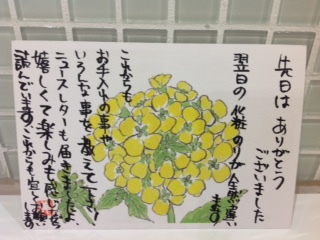 先日は ありがとう
ございました
翌日の化粧のりが全然違い
ます!
これからも
お手入れの事や
いろんな事を教えて下さい
ニュースレターも届きましたよ
嬉しくて楽しみも感じながら
読んでます。これからも宜しくお願い
します